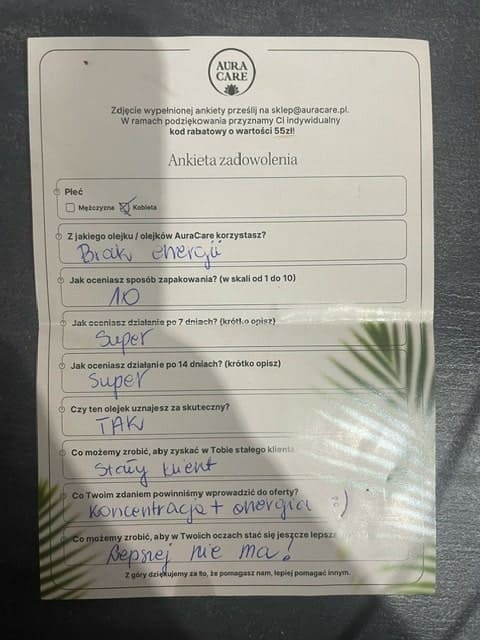 AURA
CARE
Zdjęcie wypełnionej ankiety prześlij na sklep@auracare.pl.
W ramach podziękowania przyznamy Ci indywidualny
kod rabatowy o wartości 55zł!
Ankieta zadowolenia
Płeć
Mężczyzna Kobieta
Z jakiego olejku / olejków AuraCare korzystasz?
Brak energii
Jak oceniasz sposób zapakowania? (w skali od 1 do 10)
10
Jak oceniasz działanie po 7 dniach? (krótko opisz)
Super
Jak oceniasz działanie po 14 dniach? (krótko opisz)
Super
Czy ten olejek uznajesz za skuteczny?
TAK
Co możemy zrobić, aby zyskać w Tobie stałego klienta
Stały klient
Co Twoim zdaniem powinniśmy wprowadzić do oferty?
koncentracja + energia :)
Co możemy zrobić, aby w Twoich oczach stać się jeszcze lepsz
Lepszej nie ma!
Z góry dziękujemy za to, że pomagasz nam, lepiej pomagać innym.